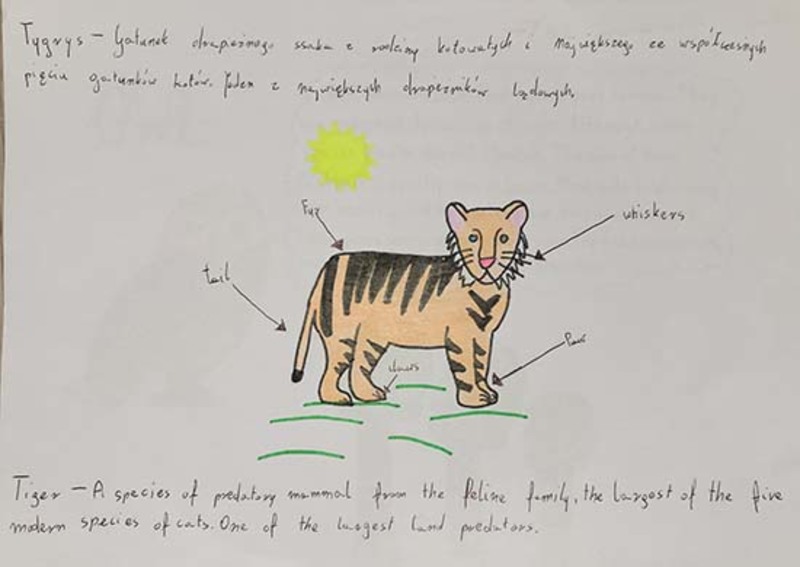 Tygrys - Gatunek drapieżnego ssaka z rodziny kotowatych i największego ze współczesnych
pięciu gatunków kotów. Jeden z największych drapieżników lądowych.
Fur
whiskers
tail
Paw
claws
Tiger - A species of predatory mammal from the feline family, the largest of the five
modern species of cats. One of the largest land predators.